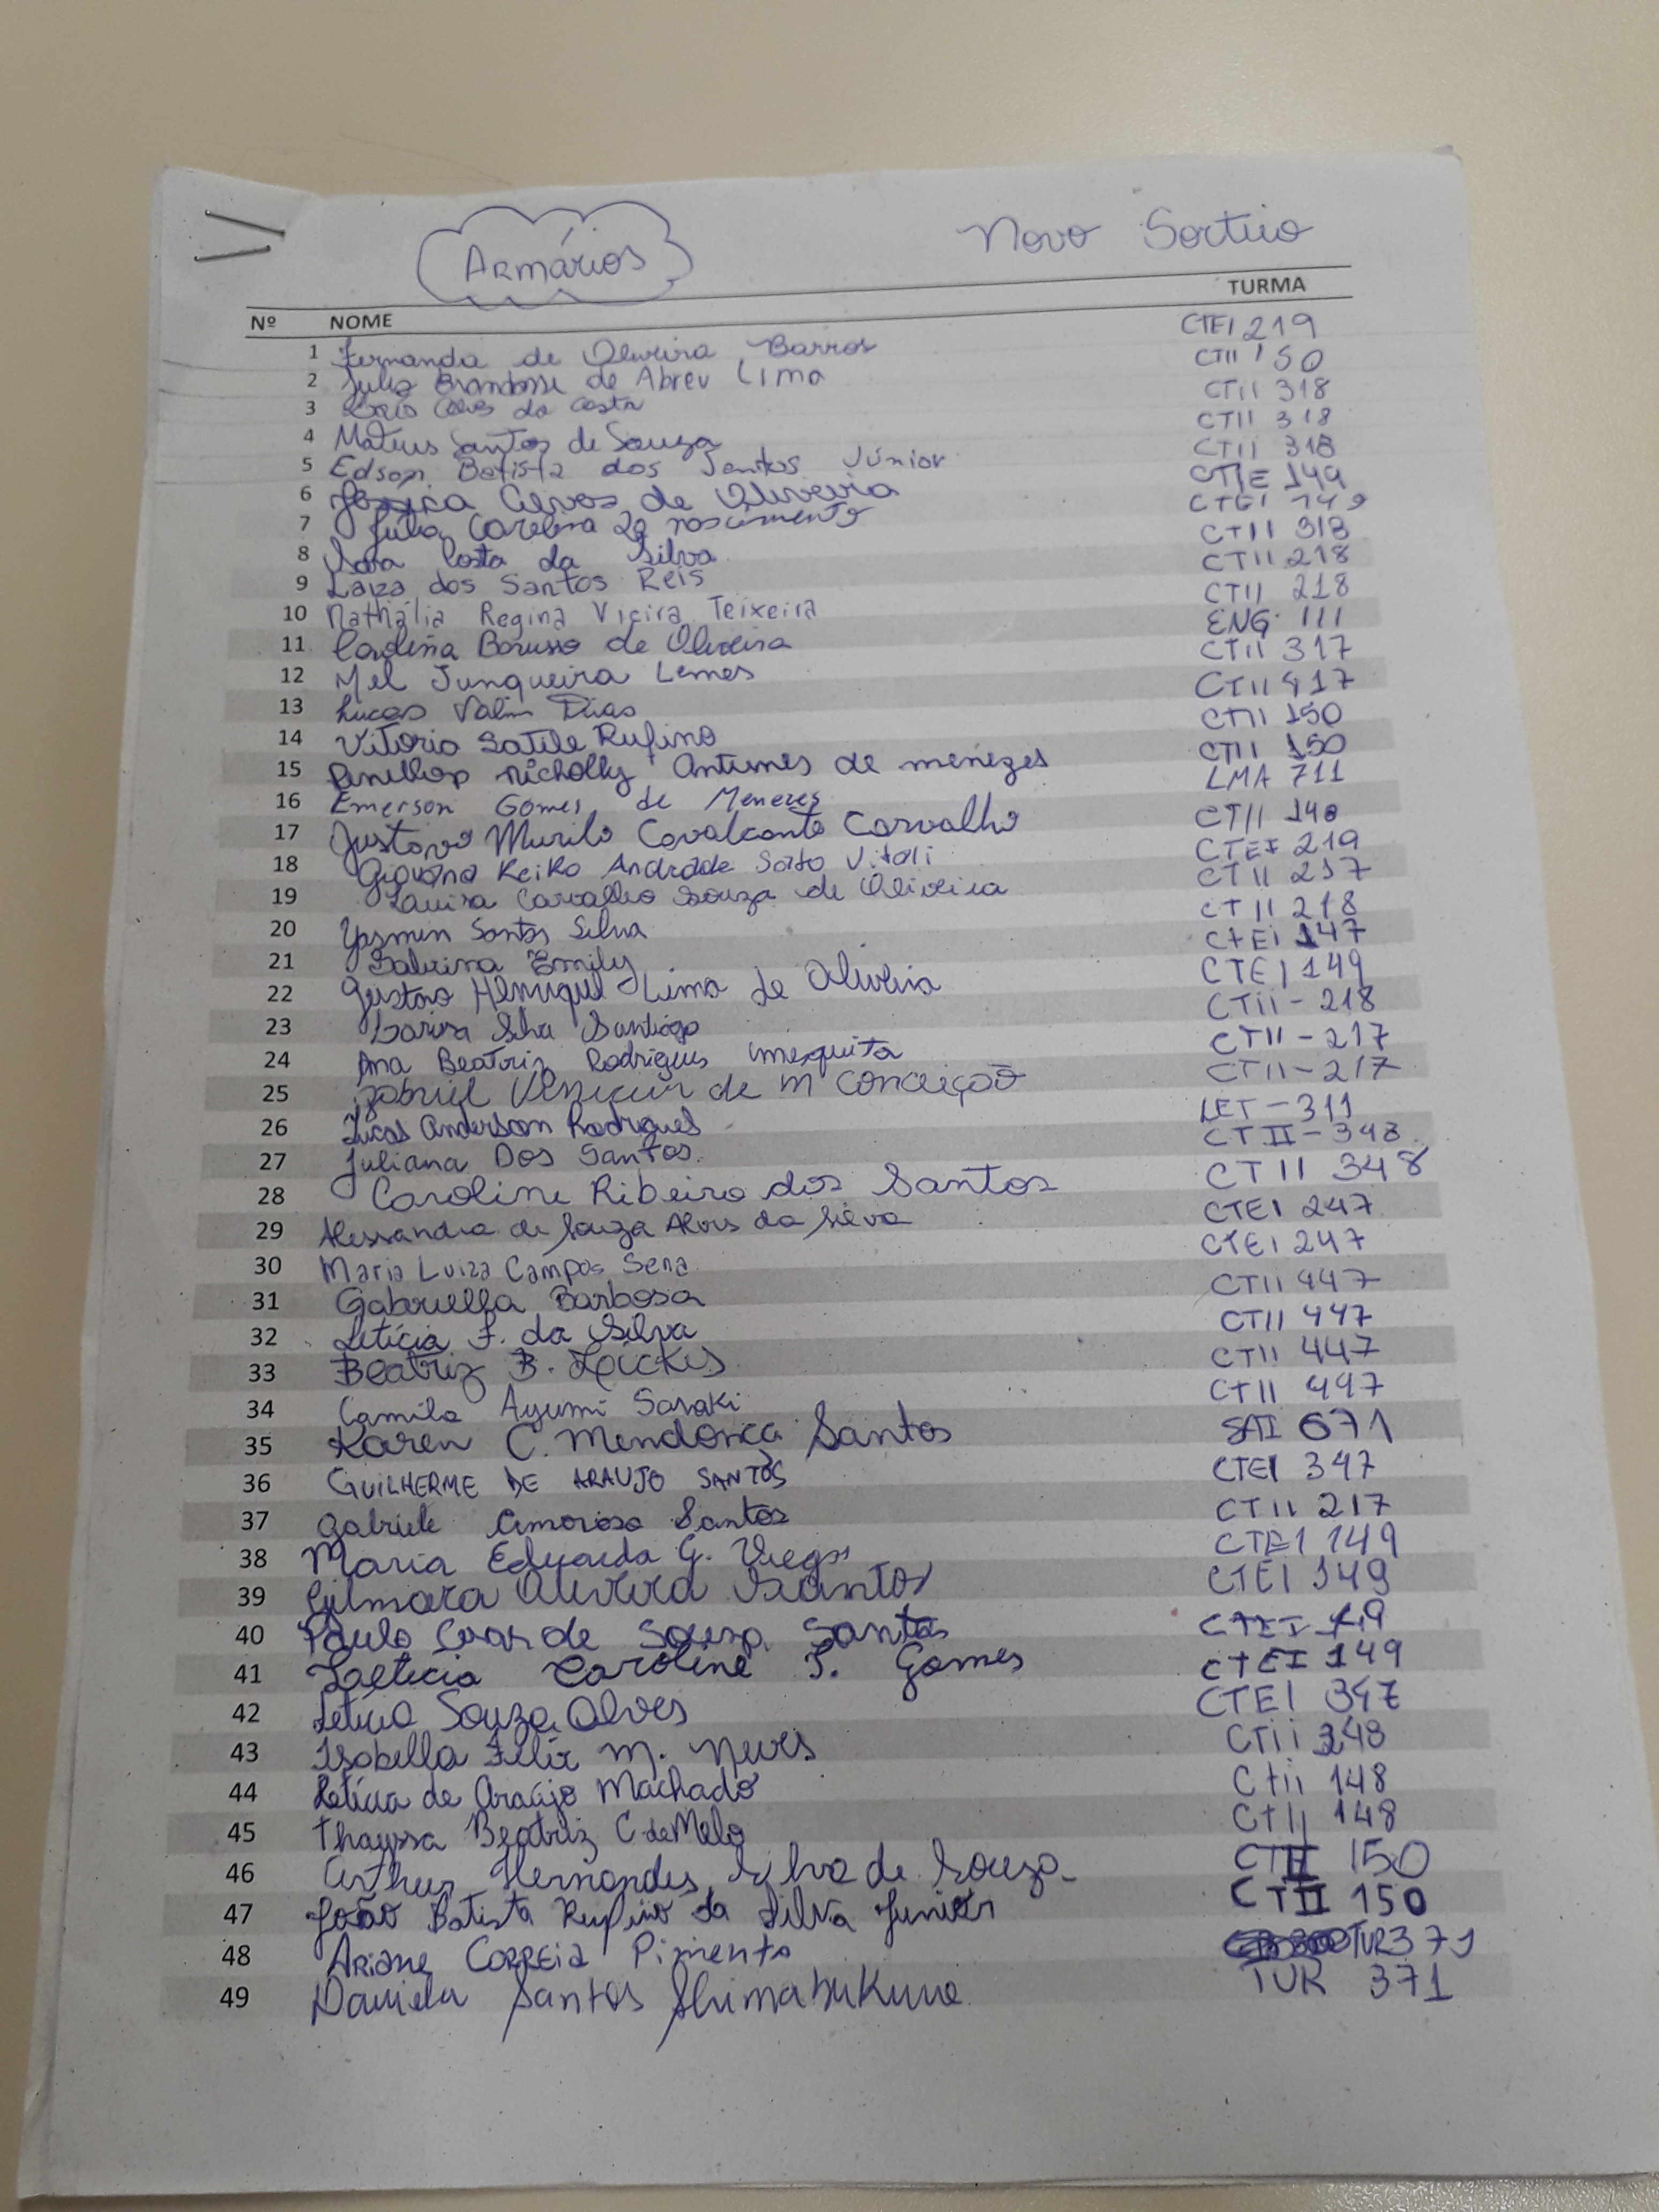 Armários Novo Sorteio
Nº NOME TURMA
1 Fernanda de Oliveira Barros CTEI 219
2 de Abreu Lima CTII 150
3 da Costa CTII 318
4 Mateus Santos de Souza CTII 318
5 Edson Batista dos Santos Júnior CTII 318
6 Jéssica Alves de Oliveira 149
7 Julia Carolina nascimento CTEI 149
8 Sara Costa da Silva CTII 318
9 Laiza dos Santos Reis CTII 218
10 Nathália Regina Vieira Teixeira CTII 218
11 Carolina Barusso de Oliveira ENG. 111
12 Mel Junqueira Lemes CTII 317
13 Lucas Valim Dias CTII 417
14 Vitoria Rufino CTII 150
15 nicholly Antunes de menezes CTII 150
16 Emerson Gomes de Menezes LMA 711
17 Gustavo Murilo Cavalcante Carvalho CTII
18 Giovana Keiko Andrade Sato Vitali CTEI 219
19 Carvalho Souza de Oliveira CTII
20 Yasmin Santos Silva CTII 218
21 Sabrina Emily CtEi 147
22 Gustavo Henrique Lima de Oliveira CTEI 149
23 Larissa Silva Santiago CTii - 218
24 Ana Beatriz Rodrigues mesquita CTII - 217
25 Gabriel de M Conceição CTII - 217
26 Lucas Anderson Rodrigues LET - 311
27 Juliana Dos Santos. CTII - 348
28 Caroline Ribeiro dos Santos CTII 348
29 Alessandra de Souza Alves da Silva CTEI 247
30 Maria Luiza Campos Sena CTEI 247
31 Gabriella Barbosa CTII 447
32 Letícia F. da Silva CTII 447
33 Beatriz B. CTII 447
34 Camila Ayumi CTII 447
35 Karen C. Mendonça Santos SAI 671
36 GUILHERME DE ARAUJO SANTOS CTEI 347
37 Gabriele Amorosa Santos CTII 217
38 Maria Eduarda G. Viegas CTEI 149
39 Gilmara Oliveira Santos CTEI 149
40 Paulo de Souza Santos CTEI
41 Laeticia Caroline S. Gomes CTEI 149
42 Letícia Souza Alves CTEI 347
43 Isabella Felix M. Neves CTii 348
44 Letícia de Araújo Machado Ctii 148
45 Thayssa Beatriz C de Melo CTII 148
46 Arthur Hernandes Silva de Souza CTII 150
47 João Batista Rufino da Silva Junior CTII 150
48 Ariane Correia Pimenta TUR 371
49 Daniela Santos Shimabukuro TUR 371